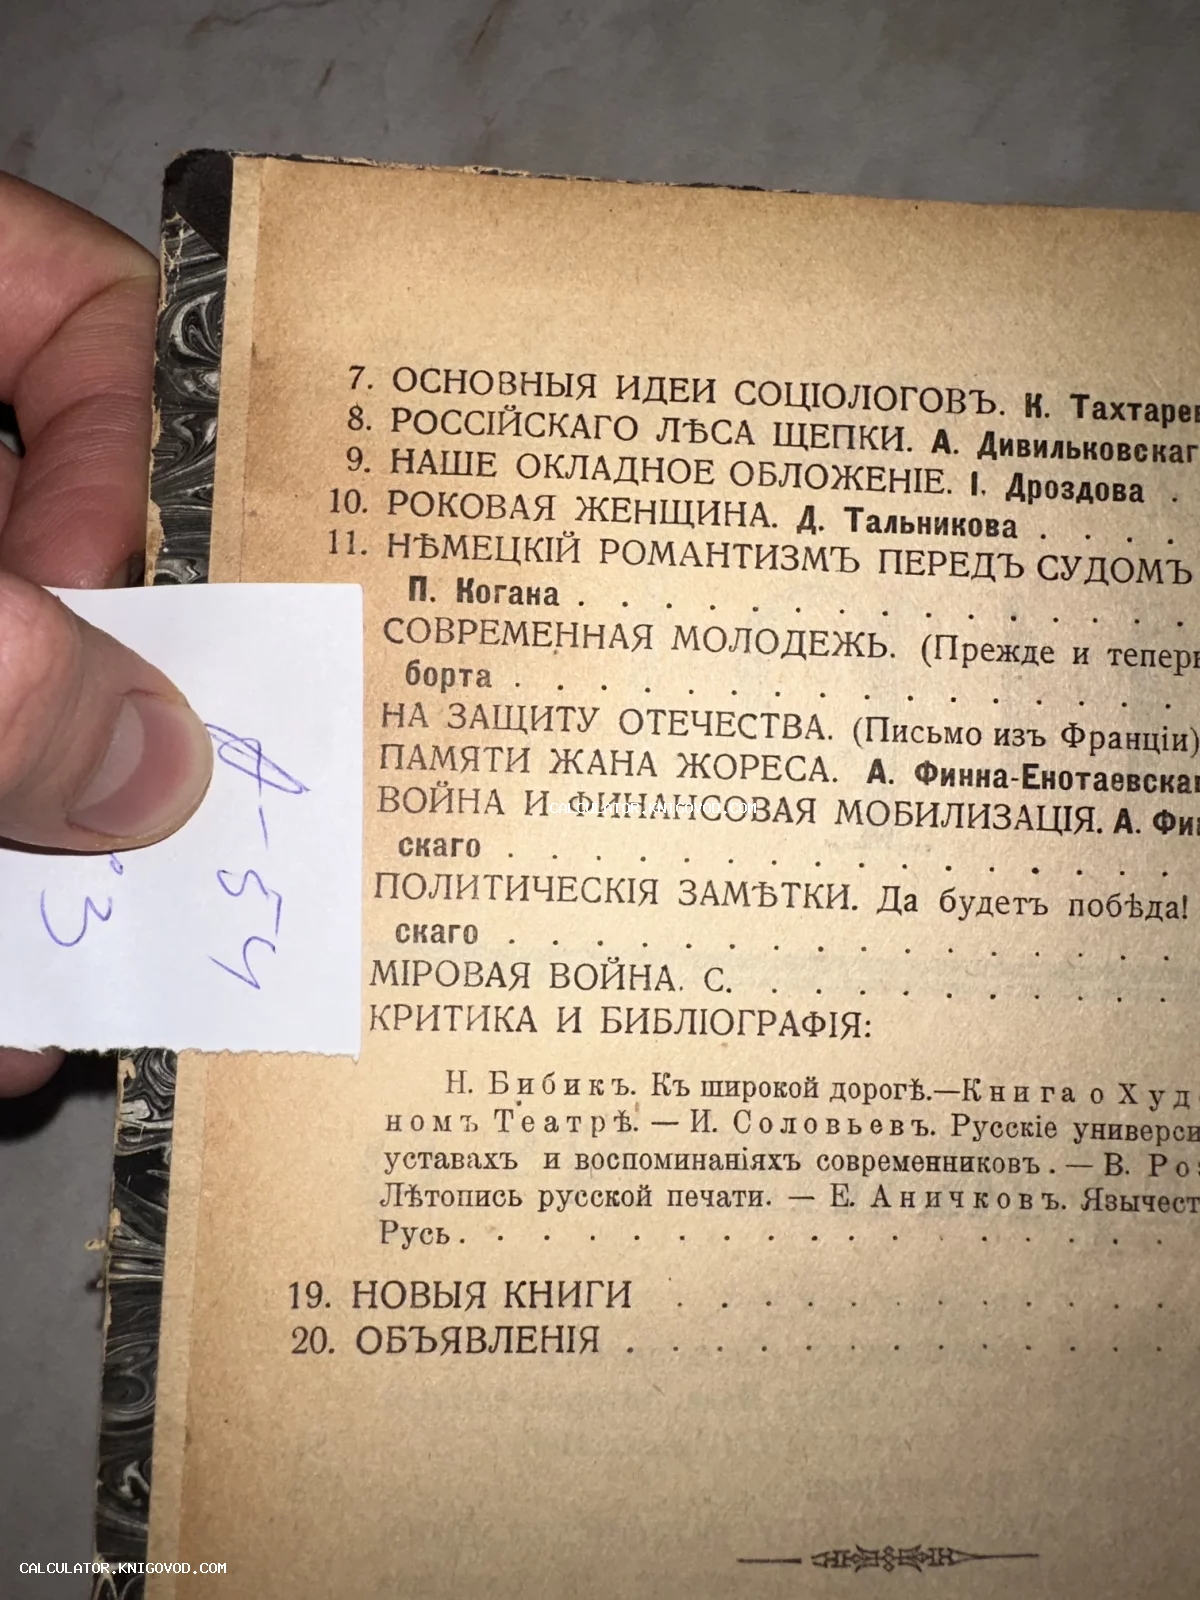 7. ОСНОВНЫЯ ИДЕИ СОЦІОЛОГОВЪ. К. Тахтарев
8. РОССІЙСКАГО ЛѢСА ЩЕПКИ. А. Дивильковскаг
9. НАШЕ ОКЛАДНОЕ ОБЛОЖЕНІЕ. І. Дроздова .
10. РОКОВАЯ ЖЕНЩИНА. Д. Тальникова . . . .
11. НѢМЕЦКІЙ РОМАНТИЗМЪ ПЕРЕДЪ СУДОМЪ
П. Когана . . . . . . . . . . . . . . .
СОВРЕМЕННАЯ МОЛОДЕЖЬ. (Прежде и теперь
борта . . . . . . . . . . . . . . . .
НА ЗАЩИТУ ОТЕЧЕСТВА. (Письмо изъ Франціи)
ПАМЯТИ ЖАНА ЖОРЕСА. А. Финна-Енотаевскаг
ВОЙНА И ФИНАНСОВАЯ МОБИЛИЗАЦІЯ. А. Фин
CALCULATOR.KNIGOVOD.COM
скаго . . . . . . . . . . . . . . . .
ПОЛИТИЧЕСКІЯ ЗАМѢТКИ. Да будетъ побѣда!
скаго . . . . . . . . . . . . . . . .
МІРОВАЯ ВОЙНА. С. . . . . . . . . . .
КРИТИКА И БИБЛІОГРАФІЯ:
Н. Бибикъ. Къ широкой дорогѣ.—Книга о Худ
номъ Театрѣ. — И. Соловьевъ. Русскіе универси
уставахъ и воспоминаніяхъ современниковъ. — В. Роз
Лѣтопись русской печати. — Е. Аничковъ. Язычест
Русь . . . . . . . . . . . . . . . . .
19. НОВЫЯ КНИГИ . . . . . . . . . . . .
20. ОБЪЯВЛЕНІЯ . . . . . . . . . . . . .
CALCULATOR.KNIGOVOD.COM